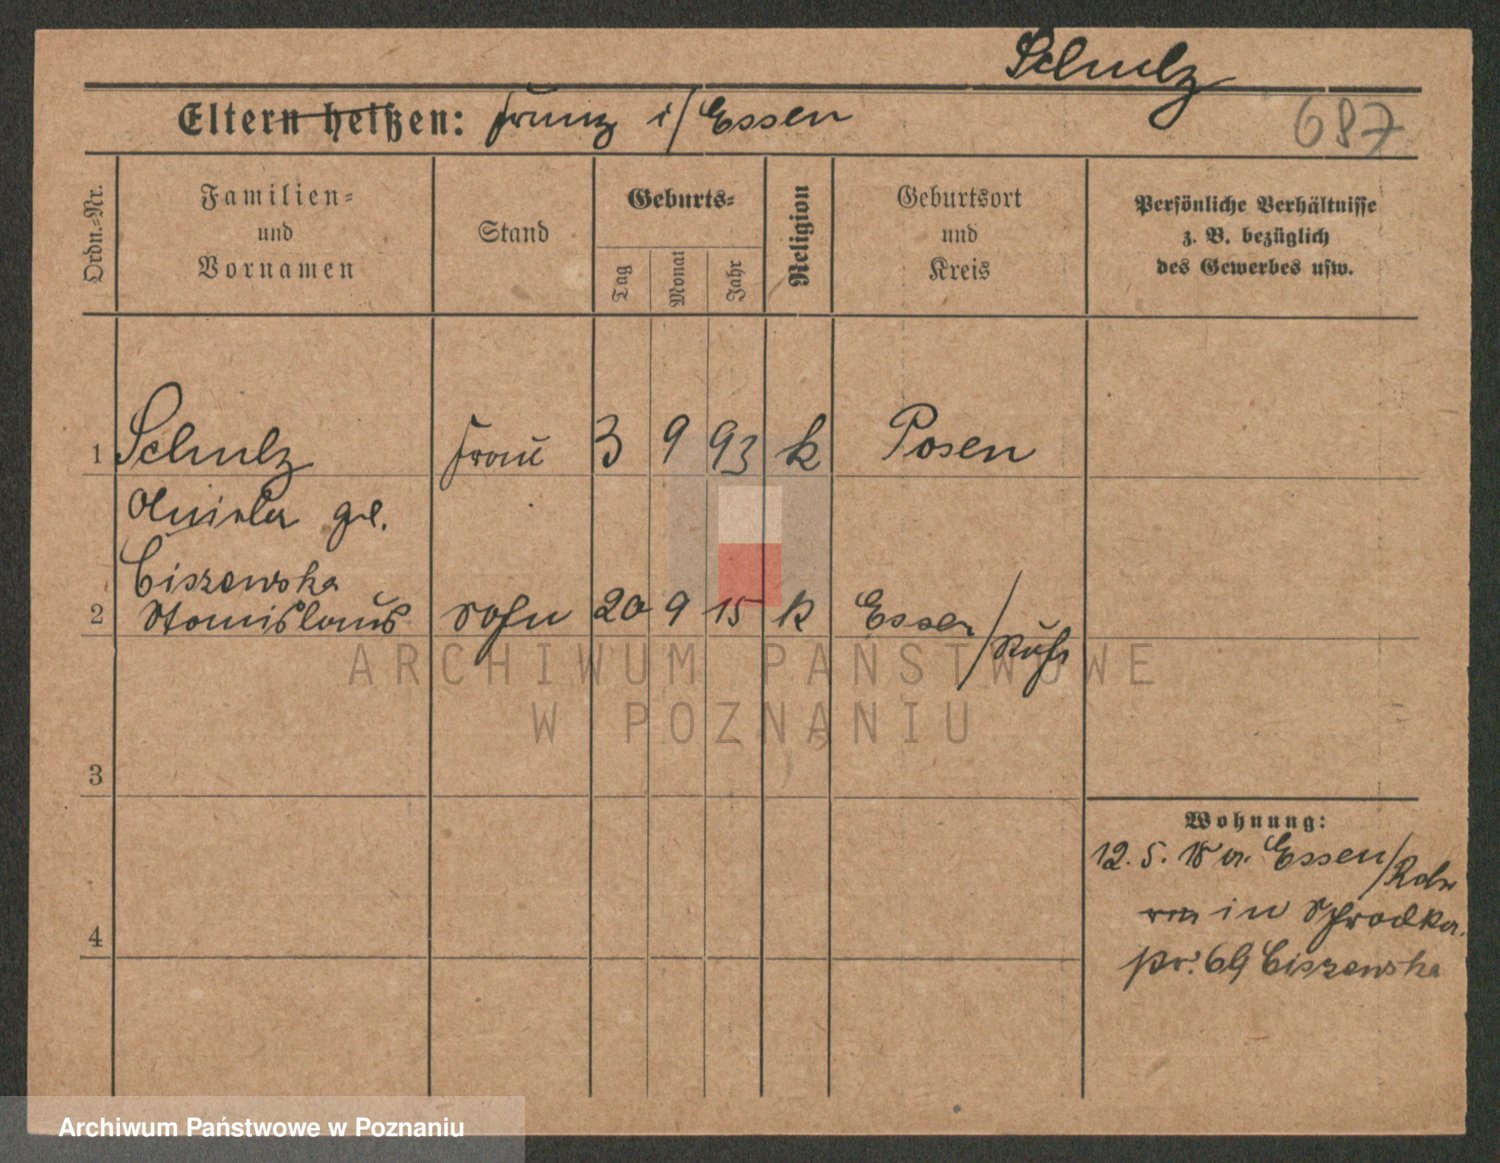 Schulz
Eltern heißen: Franz i/Essen
687
Ordn.-Nr.
Familien-
und
Vornamen
Stand
Geburts-
Tag
Monat
Jahr
Religion
Geburtsort
und
Kreis
Persönliche Verhältnisse
z. B. bezüglich
des Gewerbes usw.
1 Schulz Frau 3 9 93 k Posen
geb.
Ciszewska
2 Stanislaus Sohn 20 9 15 k Essen/Ruhr
3
4
Wohnung:
12. 5. 18 v. Essen/Ruhr
in Schrodka
pr. 69 Ciszewska
ARCHIWUM PAŃSTWOWE
W POZNANIU
Archiwum Państwowe w Poznaniu